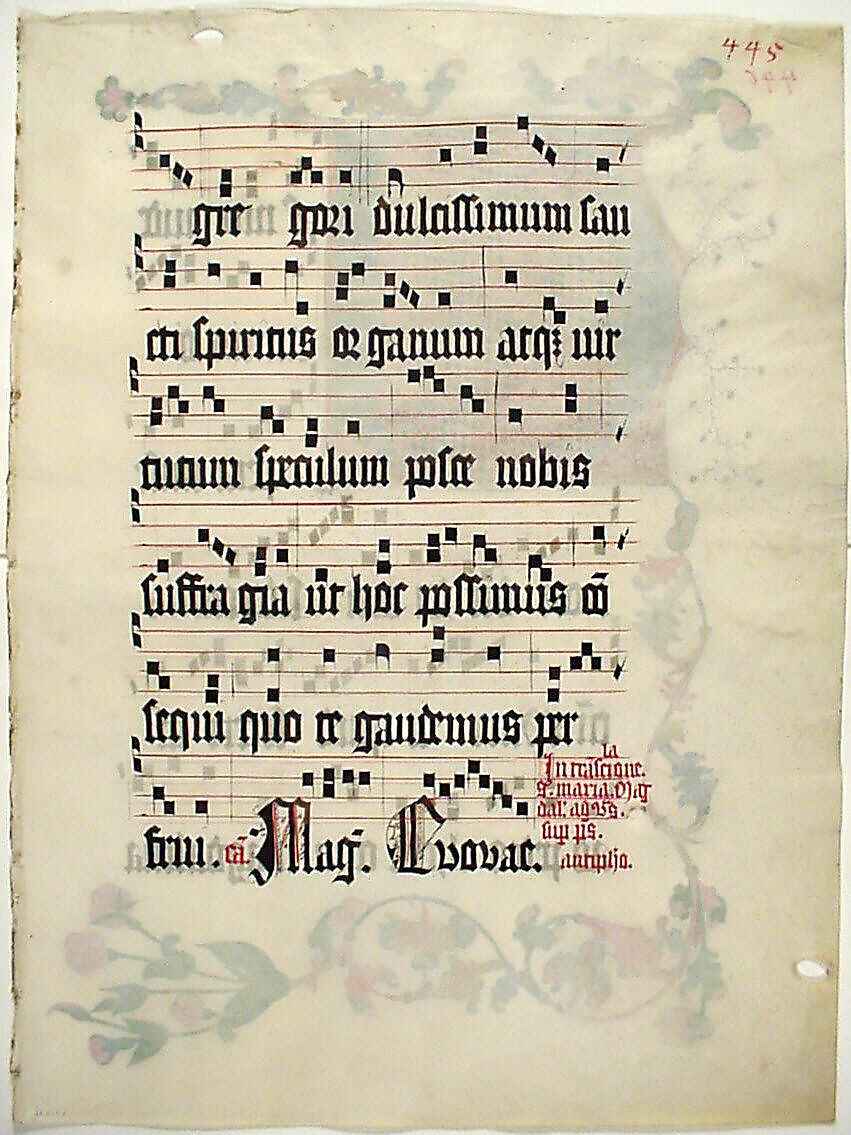 445
gre gori dulcissimum san
cti spiritus organum atqꝫ uir
tutum speculum posce nobis
suffra gia ut hoc possimus cō
sequi quo te gaudemus per
frui. cā. Mag̃. Evovae.
la
In trāscione.
s. maria. Mag
dal. ad v̄s.
sup ps.
antipho.